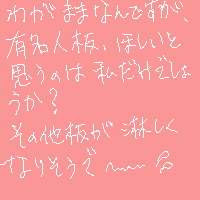 わがままなんですが、
有名人板、ほしいと
思うのは私だけでしょ
うか？
その他板が淋しく
なりそうで〜〜